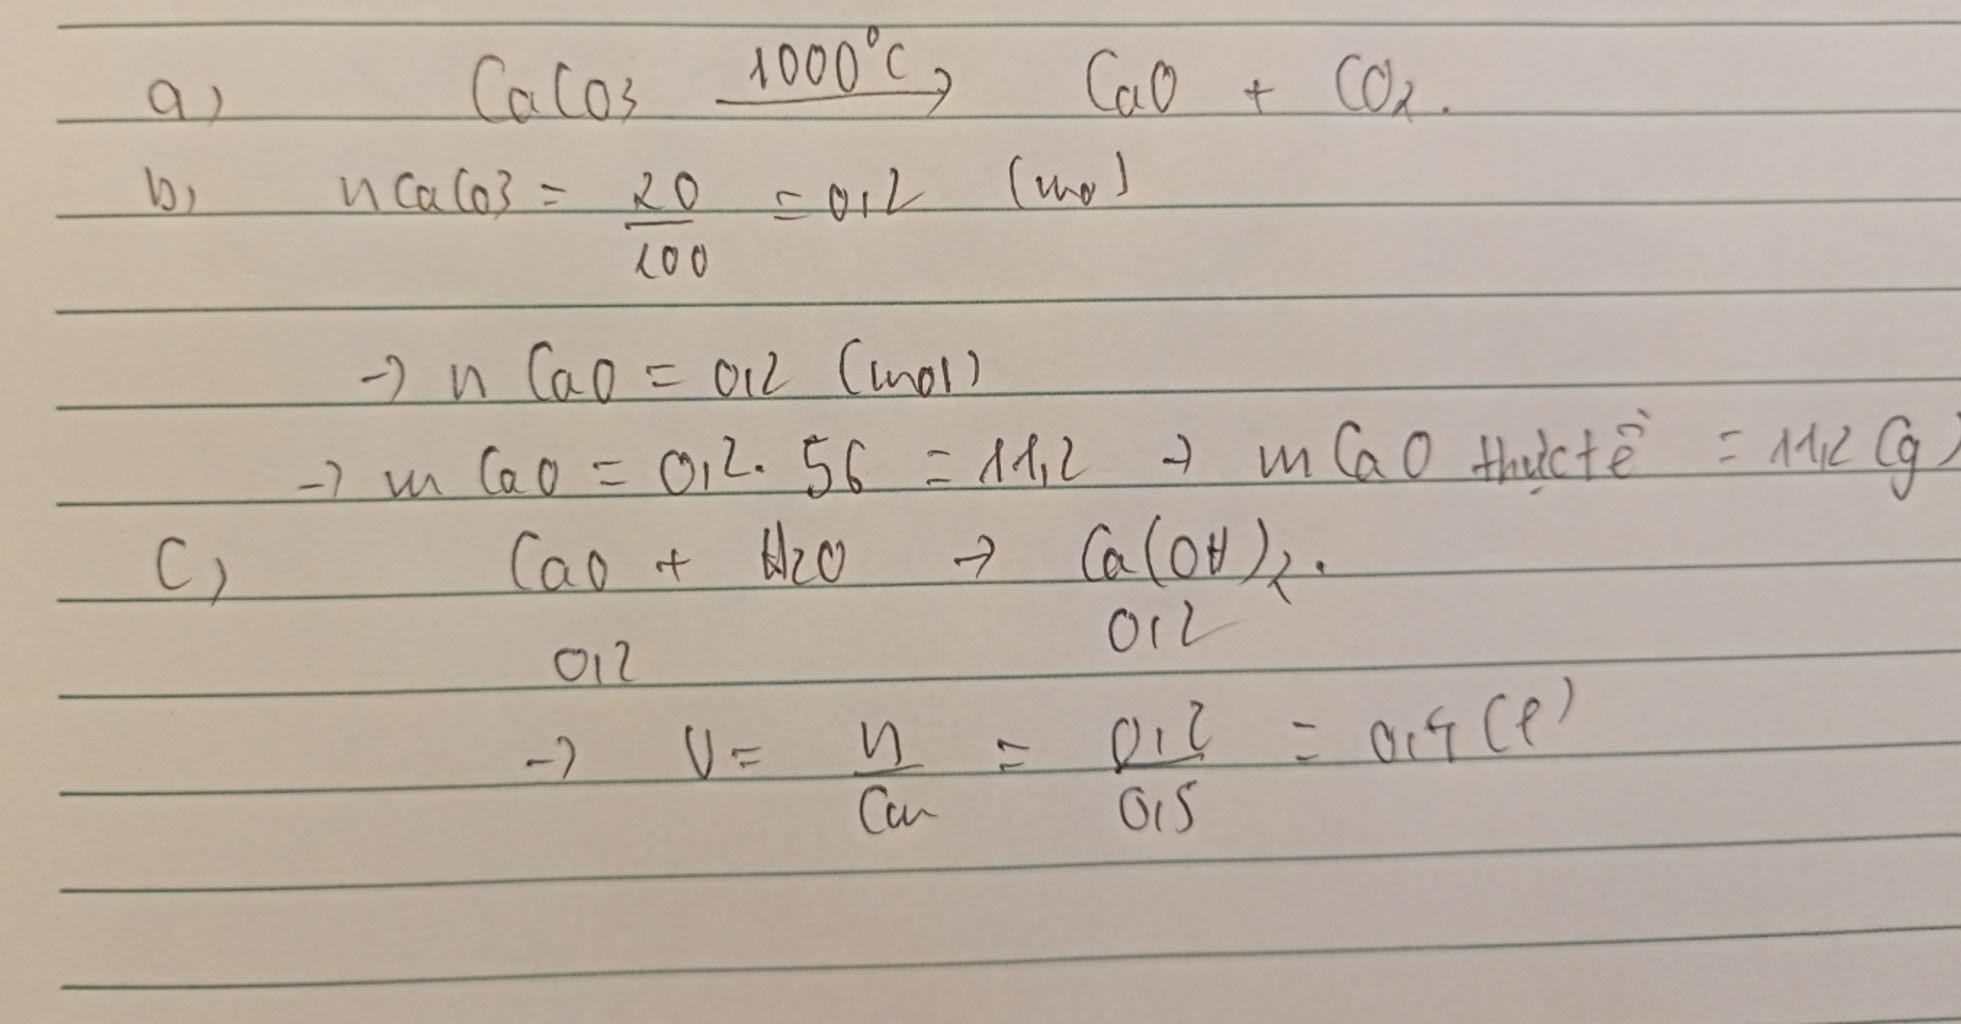 a) CaCO3 1000°C → CaO + CO2.
b) nCaCO3 = 20/100 = 0,2 (mol)
→ n CaO = 0,2 (mol)
→ m CaO = 0,2. 56 = 11,2 → m CaO thực tế = 11,2 (g)
C) CaO + H2O → Ca(OH)2.
0,2 0,2
→ V = n/CM = 0,2/0,5 = 0,4 (l)